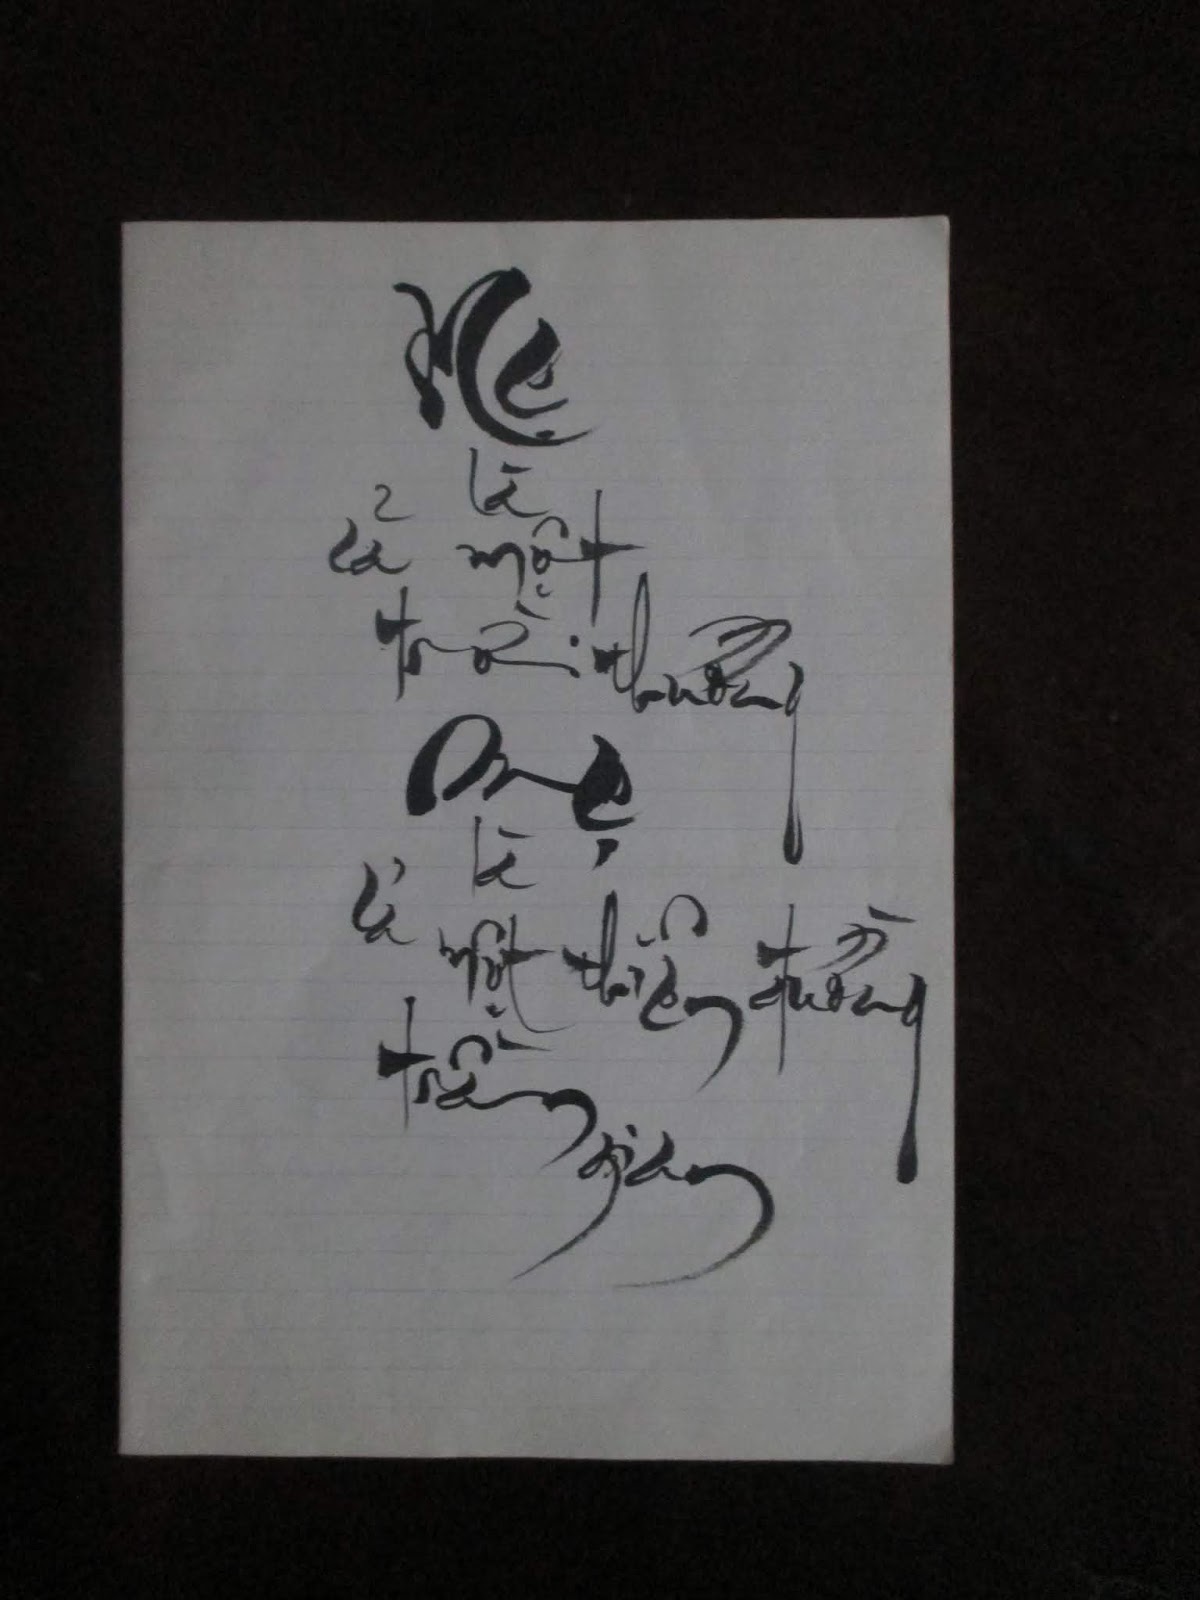 Mẹ
là
cả một
trời thương
Mẹ
là
cả
một thiên đường
trần gian